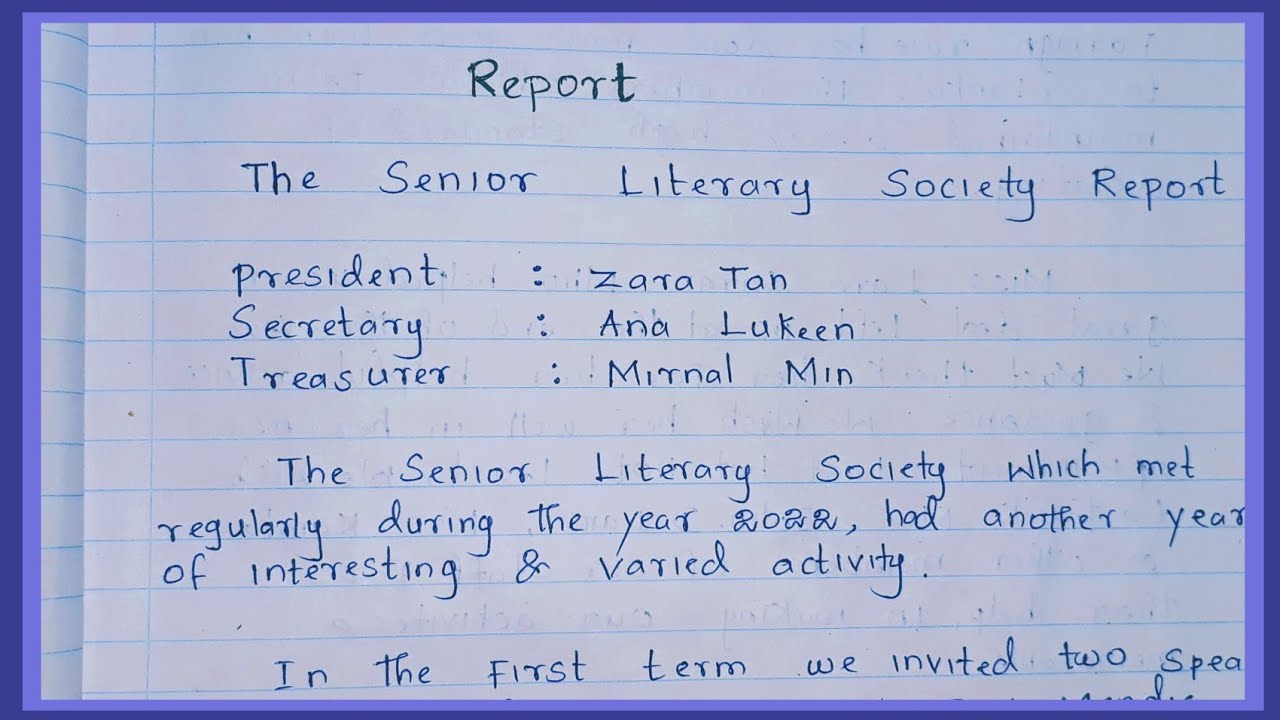 Report
The Senior Literary Society Report
president : Zara Tan
Secretary : Ana Lukeen
Treasurer : Mirnal Min
The Senior Literary Society which met
regularly during the year 2022, had another year
of interesting & varied activity.
In the First term we invited two Spea